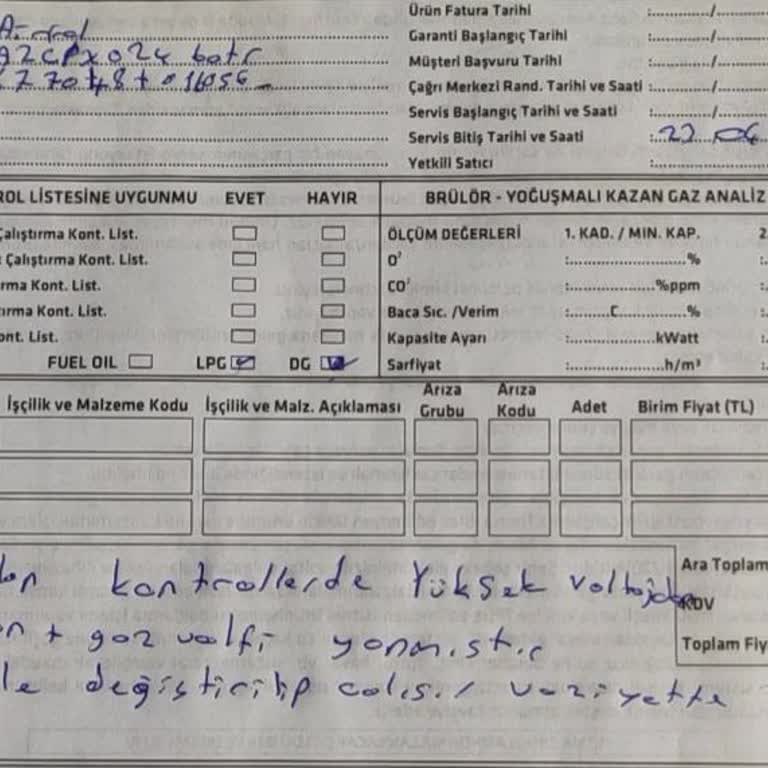 Ürün Fatura Tarihi :........../
Garanti Başlangıç Tarihi :........../
Müşteri Başvuru Tarihi :........../
Çağrı Merkezi Rand. Tarihi ve Saati :........../
Servis Başlangıç Tarihi ve Saati :........../
Servis Bitiş Tarihi ve Saati :
Yetkili Satıcı :
ROL LİSTESİNE UYGUNMU EVET HAYIR
Çalıştırma Kont. List.
Çalıştırma Kont. List.
rma Kont. List.
ırma Kont. List.
ont. List.
FUEL OIL LPG DG
BRÜLÖR - YOĞUŞMALI KAZAN GAZ ANALİZ
ÖLÇÜM DEĞERLERİ 1. KAD. / MIN. KAP. 2
O² :....................%
CO² :...............%ppm
Baca Sıc. /Verim :........C............%
Kapasite Ayarı :...............kWatt
Sarfiyat :.................h/m³
İşçilik ve Malzeme Kodu İşçilik ve Malz. Açıklaması Arıza Grubu Arıza Kodu Adet Birim Fiyat (TL)
kontrollerde Yüksek voltajdan
+ gaz valfi yanmıştır
değiştirilip çalışır vaziyette
Ara Toplam
KDV
Toplam Fiy